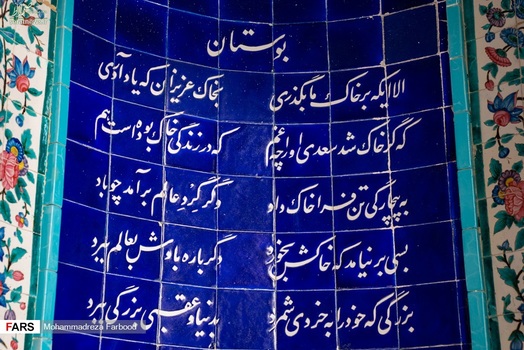 بوستان
الا ایکه بر خاک ما بگذری بخاک عزیزان که یاد آوری
که گر خاک شد سعدی او را چه غم که در زندگی خاک بوده است هم
به بیچارگی تن فرا خاک داد وگر گرد عالم برآمد چو باد
بسی بر نیامد که خاکش بخورد دگر باره بادش بعالم ببرد
بزرگی که خود را به خردی شمرد بدنیا و عقبی بزرگی ببرد
FARS Mohammadreza Farbood